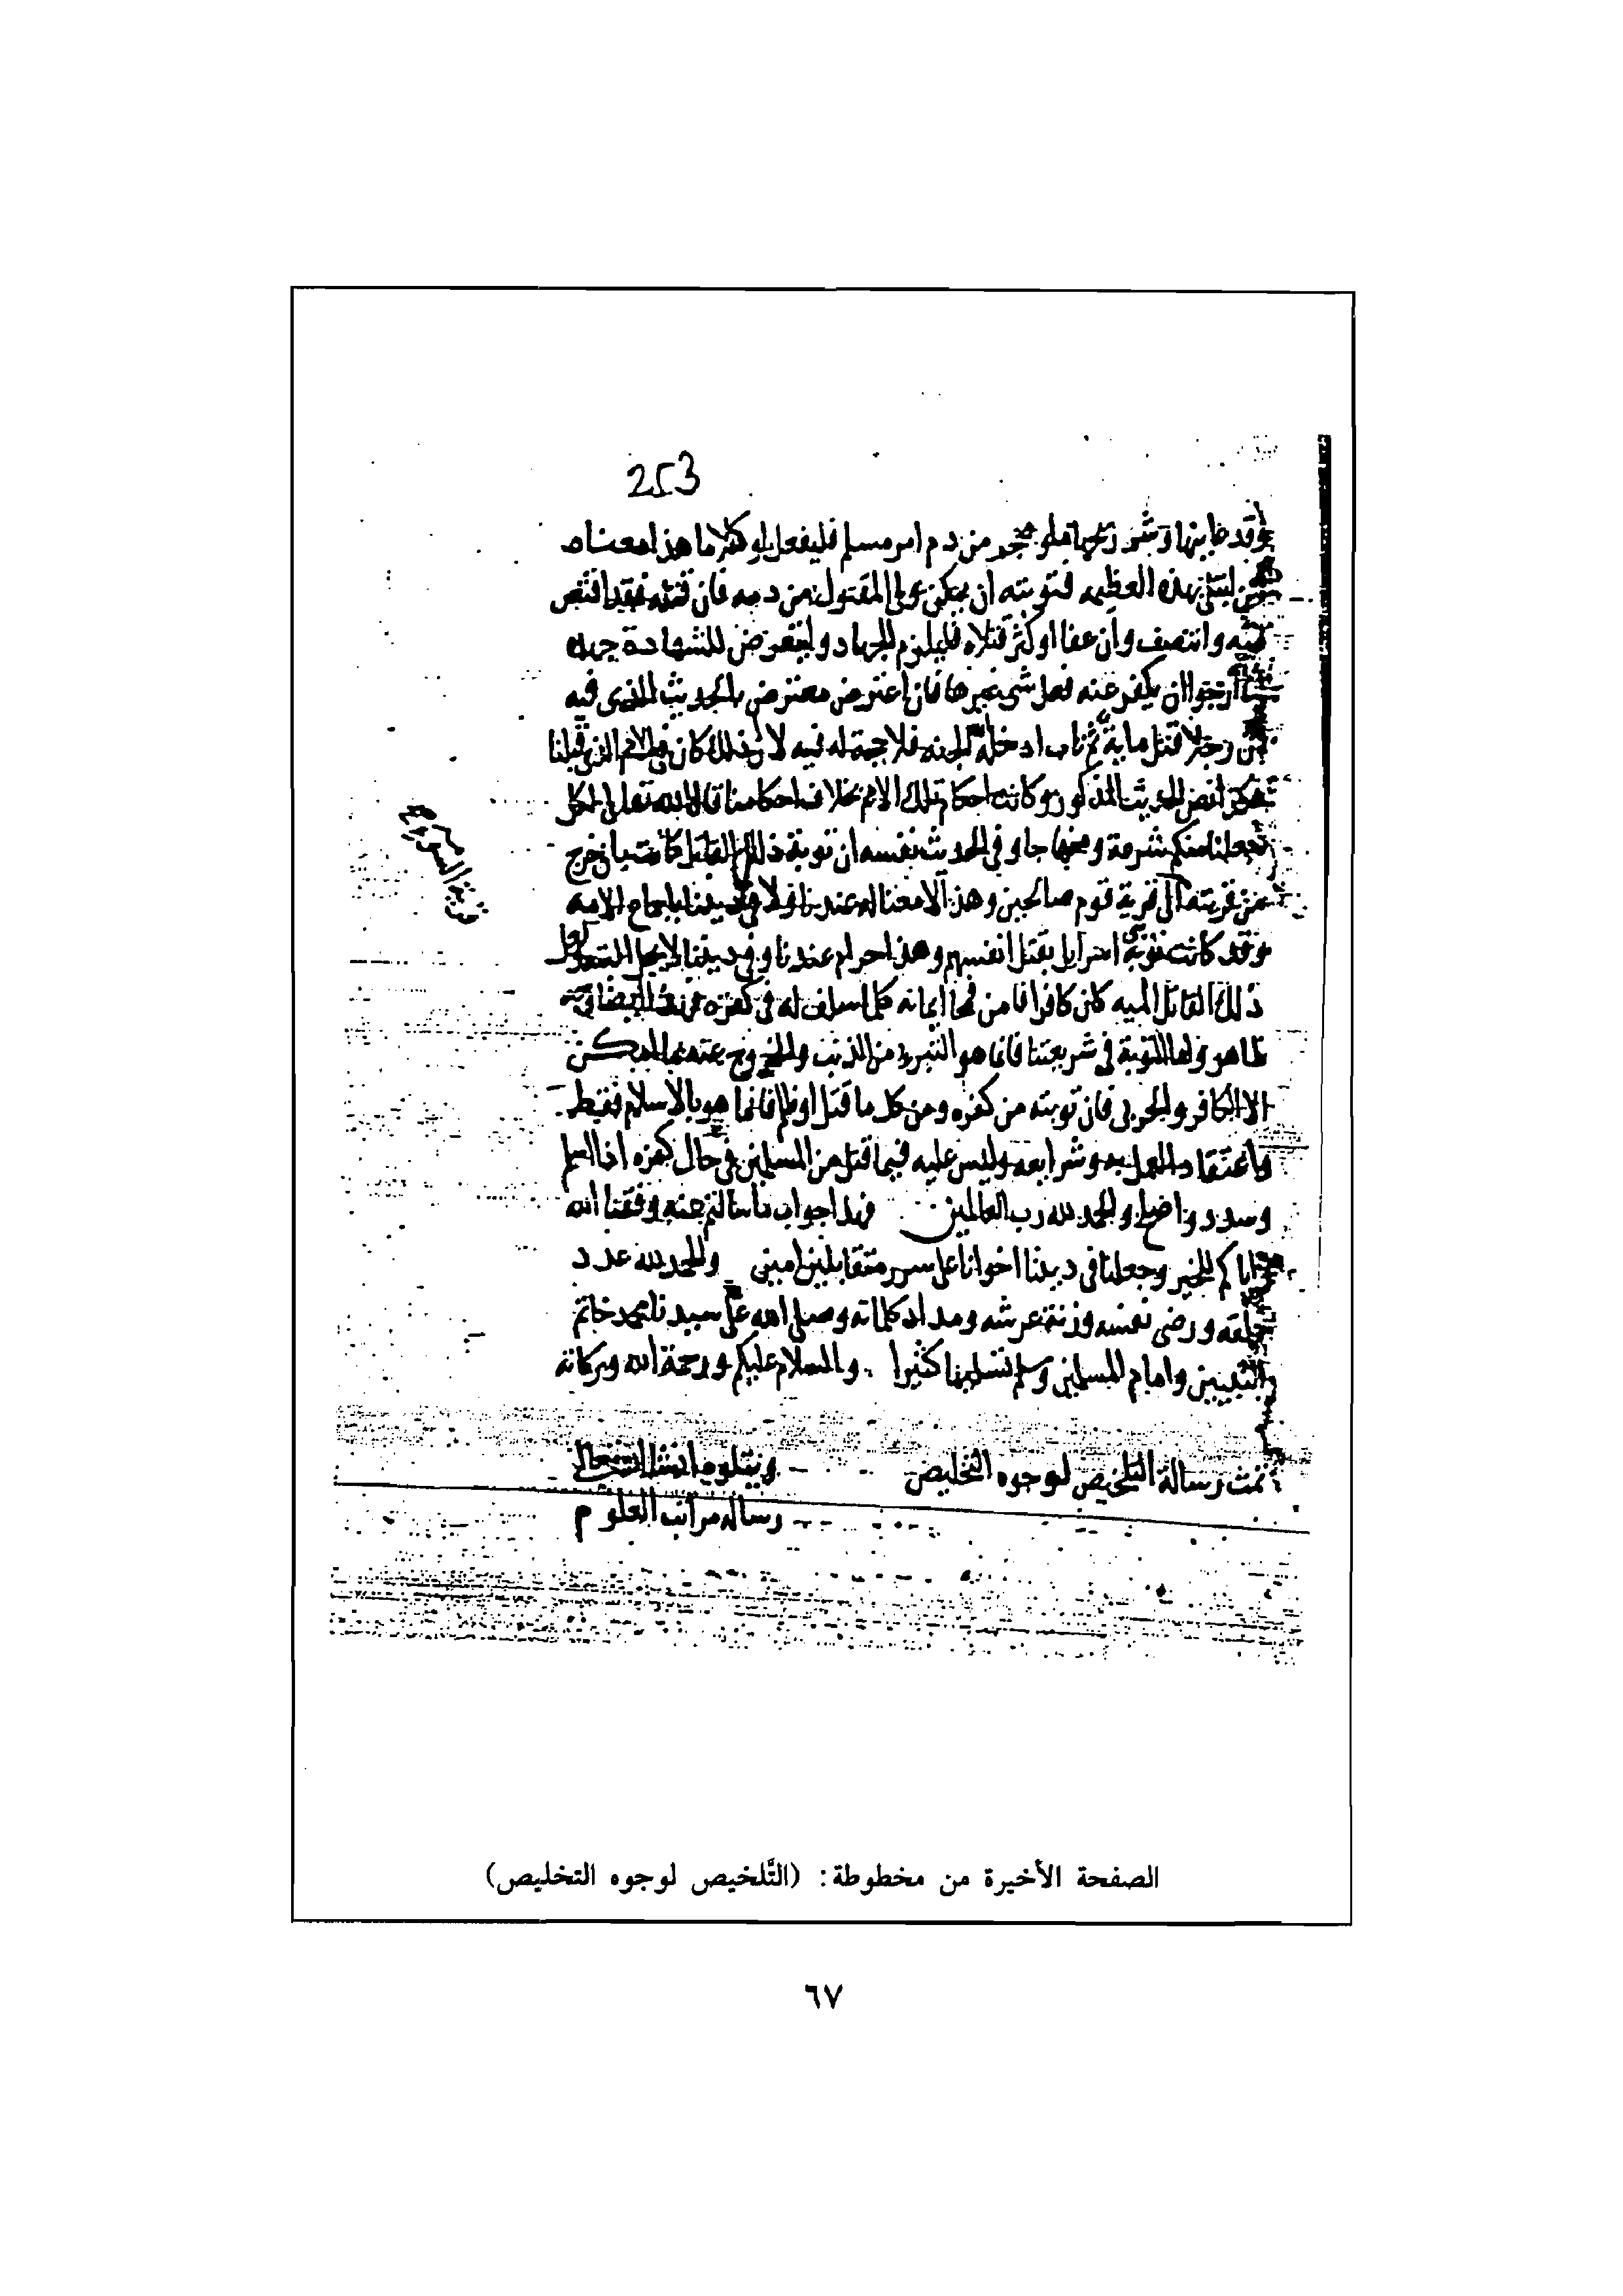 253
من دم امر مسلم فليفعل ما هذا معناه
بهذه العظيمه فتوبته ان يمكن ولى المقتول من دمه فان قتله فقد اقتص
منه وانتصف وان عفا او كثر قتلاه فليلزم الجهاد وليتعرض للشهادة جهده
ارجوا ان يكفر عنه فعل شى غيرها فان اعترض معترض بالحديث الذى فيه
رجلا قتل ماية ثم تاب ادخله الجنه فلا حجة له فيه لان ذلك كان فى الامم الذى قبلنا
هكذا نص الحديث المذكور وكانت احكام تلك الامم بخلاف احكامنا قال الله تعلى لكل
جعلنا منكم شرعة ومنهاجا وفى الحديث نفسه ان توبة ذلك القاتل كانت بان خرج
من قريته الى قرية قوم صالحين وهذا لا معنا له عندنا ولا فى ديننا باجماع الامه
وقد كانت توبة بنى اسرايل بقتل انفسهم وهذا حرام عندنا وفى ديننا لا يحل
ذلك القاتل الميه كان كافرا فامن فمحا ايمانه كلما سلف له فى كفره
ظاهر واما التوبة فى شريعتنا فانما هو التبرء من الذنب والخروج عنه
الا الكافر والحربى فان توبته من كفره ومن كل ما قتل او ظلم فانما هو بالاسلام فقط
واعتقاد العمل به وشرايعه وليس عليه فيما قتل من المسلمين فى حال كفره اذا اسلم
وسدد واضح والحمد لله رب العالمين فهذا جواب ما سالتم عنه وفقنا الله
واياكم للخير وجعلنا فى ديننا اخوانا على سرر متقابلين امين والحمد لله عدد
خلقه ورضى نفسه وزنة عرشه ومداد كلماته وصلى الله على سيدنا محمد خاتم
النبيين وامام المسلمين وسلم تسليما كثيرا والسلام عليكم ورحمة الله وبركاته
تمت رسالة التلخيص لوجوه التخليص ويتلوه انشا الله تعالى
رساله مراتب العلوم
الصفحة الأخيرة من مخطوطة: (التَّلخيص لوجوه التخليص)
٦٧